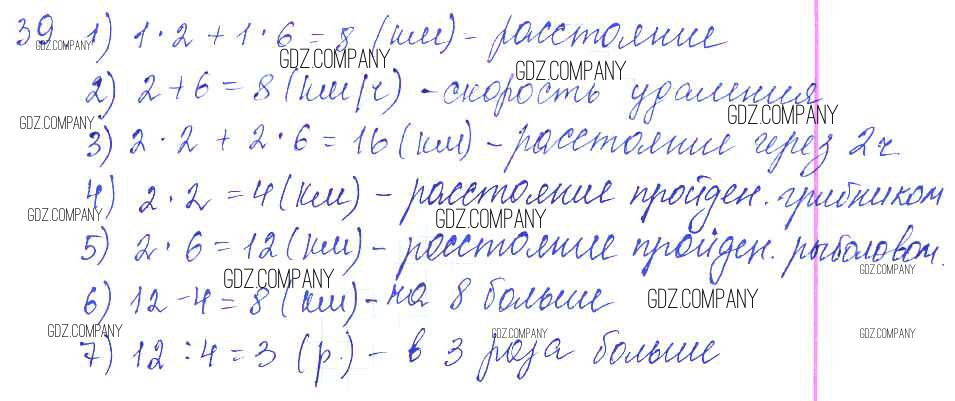 39. 1) 1 · 2 + 1 · 6 = 8 (км) - расстояние
GDZ.COMPANY
GDZ.COMPANY
GDZ.COMPANY
2) 2 + 6 = 8 (км/ч) - скорость удаления
GDZ.COMPANY
GDZ.COMPANY
3) 2 · 2 + 2 · 6 = 16 (км) - расстояние через 2ч
4) 2 · 2 = 4 (км) - расстояние пройден. грибником
GDZ.COMPANY
GDZ.COMPANY
5) 2 · 6 = 12 (км) - расстояние пройден. рыболовом.
GDZ.COMPANY
GDZ.COMPANY
6) 12 - 4 = 8 (км) - на 8 больше
GDZ.COMPANY
GDZ.COMPANY
GDZ.COMPANY
GDZ.COMPANY
7) 12 : 4 = 3 (р.) - в 3 раза больше